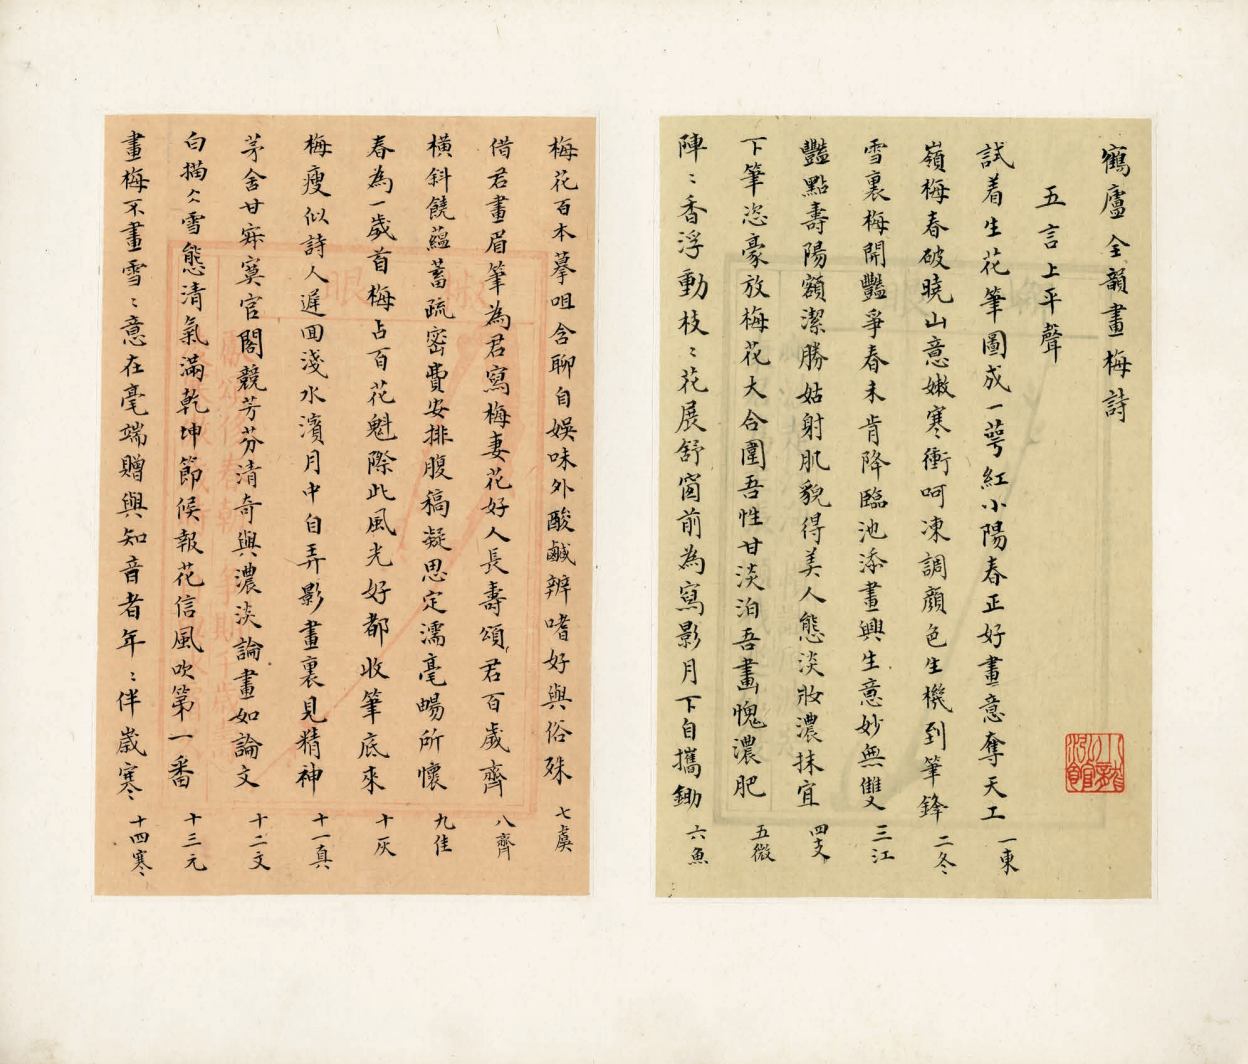 鶴廬全韻畫梅詩
五言上平聲
試着生花筆圖成一萼紅小陽春正好畫意奪天工 一東
嶺梅春破曉山意嫩寒衝呵凍調顏色生機到筆鋒 二冬
雪裏梅開豔爭春未肯降臨池添畫興生意妙無雙 三江
豔點壽陽額潔勝姑射肌貌得美人態淡妝濃抹宜 四支
下筆恣豪放梅花大合圍吾性甘淡泊吾畫愧濃肥 五微
陣〻香浮動枝〻花展舒窗前為寫影月下自攜鋤 六魚
梅花百本摹咀含聊自娛味外酸鹹辨嗜好與俗殊 七虞
借君畫眉筆為君寫梅妻花好人長壽頌君百歲齊 八齊
橫斜饒蘊蓄疏密費安排腹稿凝思定濡毫暢所懷 九佳
春為一歲首梅占百花魁際此風光好都收筆底來 十灰
梅瘦似詩人遲回淺水濱月中自弄影畫裏見精神 十一真
茅舍甘寂寞官閣競芳芬清奇與濃淡論畫如論文 十二文
白描〻雪態清氣滿乾坤節候報花信風吹第一番 十三元
畫梅不畫雪〻意在毫端贈與知音者年〻伴歲寒 十四寒